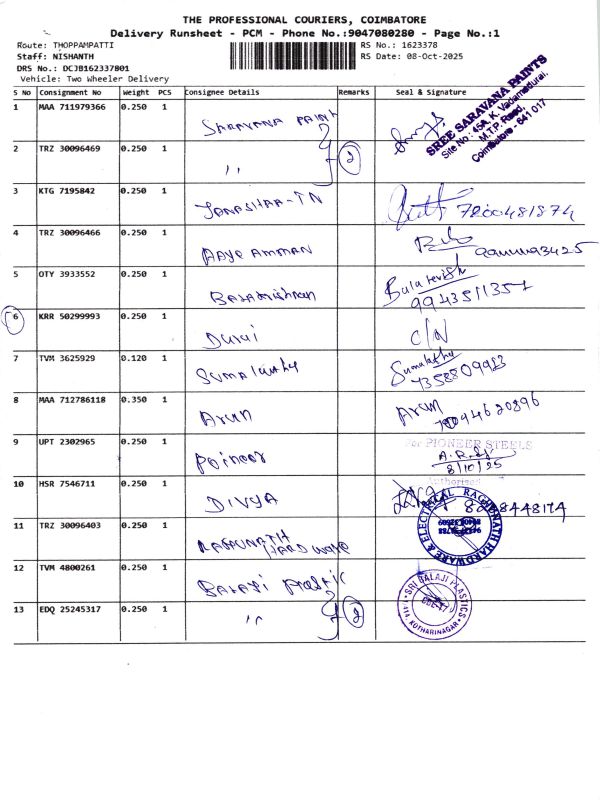 THE PROFESSIONAL COURIERS, COIMBATORE
Delivery Runsheet - PCM - Phone No.:9047080280 - Page No.:1
Route: THOPPAMPATTI
RS No.: 1623378
Staff: NISHANTH
RS Date: 08-Oct-2025
DRS No.: DCJB162337801
Vehicle: Two Wheeler Delivery
S No Consignment No Weight PCS Consignee Details Remarks Seal & Signature
1 MAA 711979366 0.250 1 SARAVANA PAINT
SREE SARAVANA PAINTS
Site No : 45A, K. Vadamadurai,
M.T.P. Road,
Coimbatore - 641 017
2 TRZ 30096469 0.250 1 ,, 2
3 KTG 7195842 0.250 1 JANASHAA-TN 7200481874
4 TRZ 30096466 0.250 1 AAYE AMMAN
5 OTY 3933552 0.250 1 Balakrishnan
9943511357
6 KRR 50299993 0.250 1 Durai C/N
7 TVM 3625929 0.120 1 Sumalathy Sumalathy
7358809983
8 MAA 712786118 0.350 1 Arun Arun
9 UPT 2302965 0.250 1 Poineer
For PIONEER STEELS
8/10/25
Authorised
10 HSR 7546711 0.250 1 DIVYA
11 TRZ 30096403 0.250 1 RAGUNATH HARDWARE
RAGHUNATH HARDWARE & ELECTRICAL
12 TVM 4800261 0.250 1 Balaji Plastic
SRI BALAJI PLASTICS
KOTHARINAGAR
13 EDQ 25245317 0.250 1 ,, 2